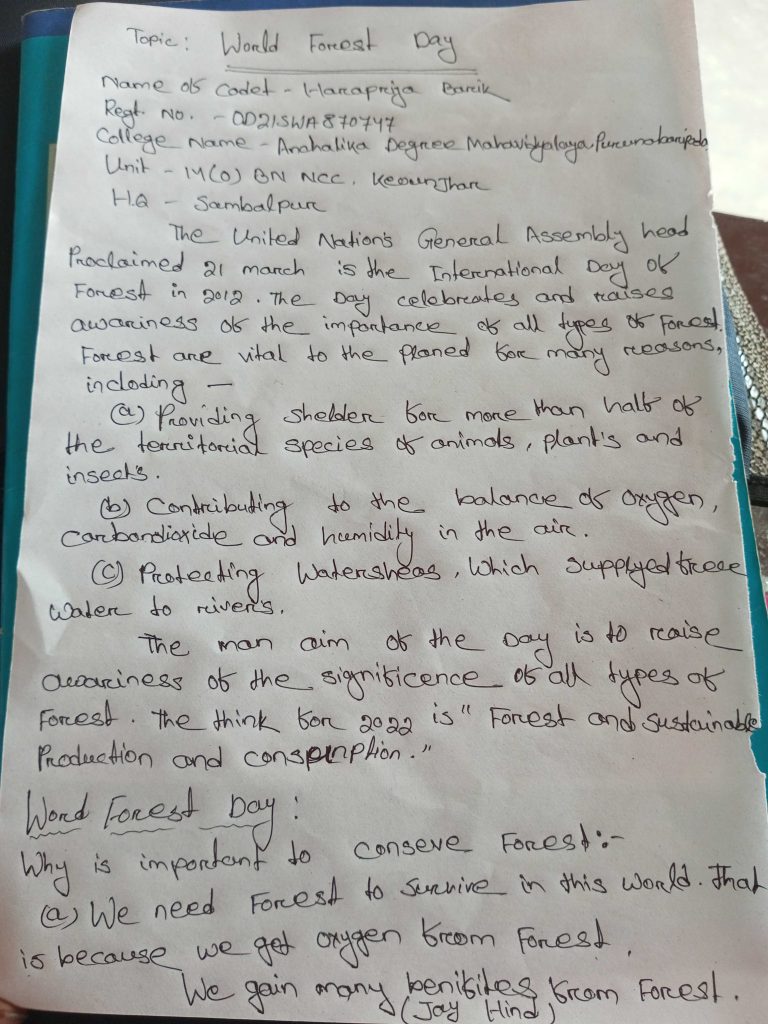 Topic: World Forest Day
Name of Cadet - Harapriya Barik
Regt. No. - OD21SWA870747
College Name - Anchalika Degree Mahavidyalaya, Purunabaripada
Unit - 14(O) BN NCC, Keounjhar
H.Q - Sambalpur
The United Nation's General Assembly head
Proclaimed 21 march is the International Day of
Forest in 2012. The Day celebrates and raises
awariness of the importance of all types of Forest.
Forest are vital to the planed for many reasons,
incloding —
(a) Providing shelder for more than half of
the territorial species of animals, plant's and
insect's.
(b) Contributing to the balance of oxygen,
carbondioxide and humidity in the air.
(C) Protecting Watersheas, Which supplyed free
Water to river's.
The man aim of the Day is to raise
awariness of the significence of all types of
Forest. The think for 2022 is "Forest and sustainable
Production and conspnption."
Word Forest Day:
Why is important to conseve Forest:-
(a) We need Forest to survive in this world. That
is because we get oxygen from Forest.
We gain many benifites from Forest.
(Jay Hind)